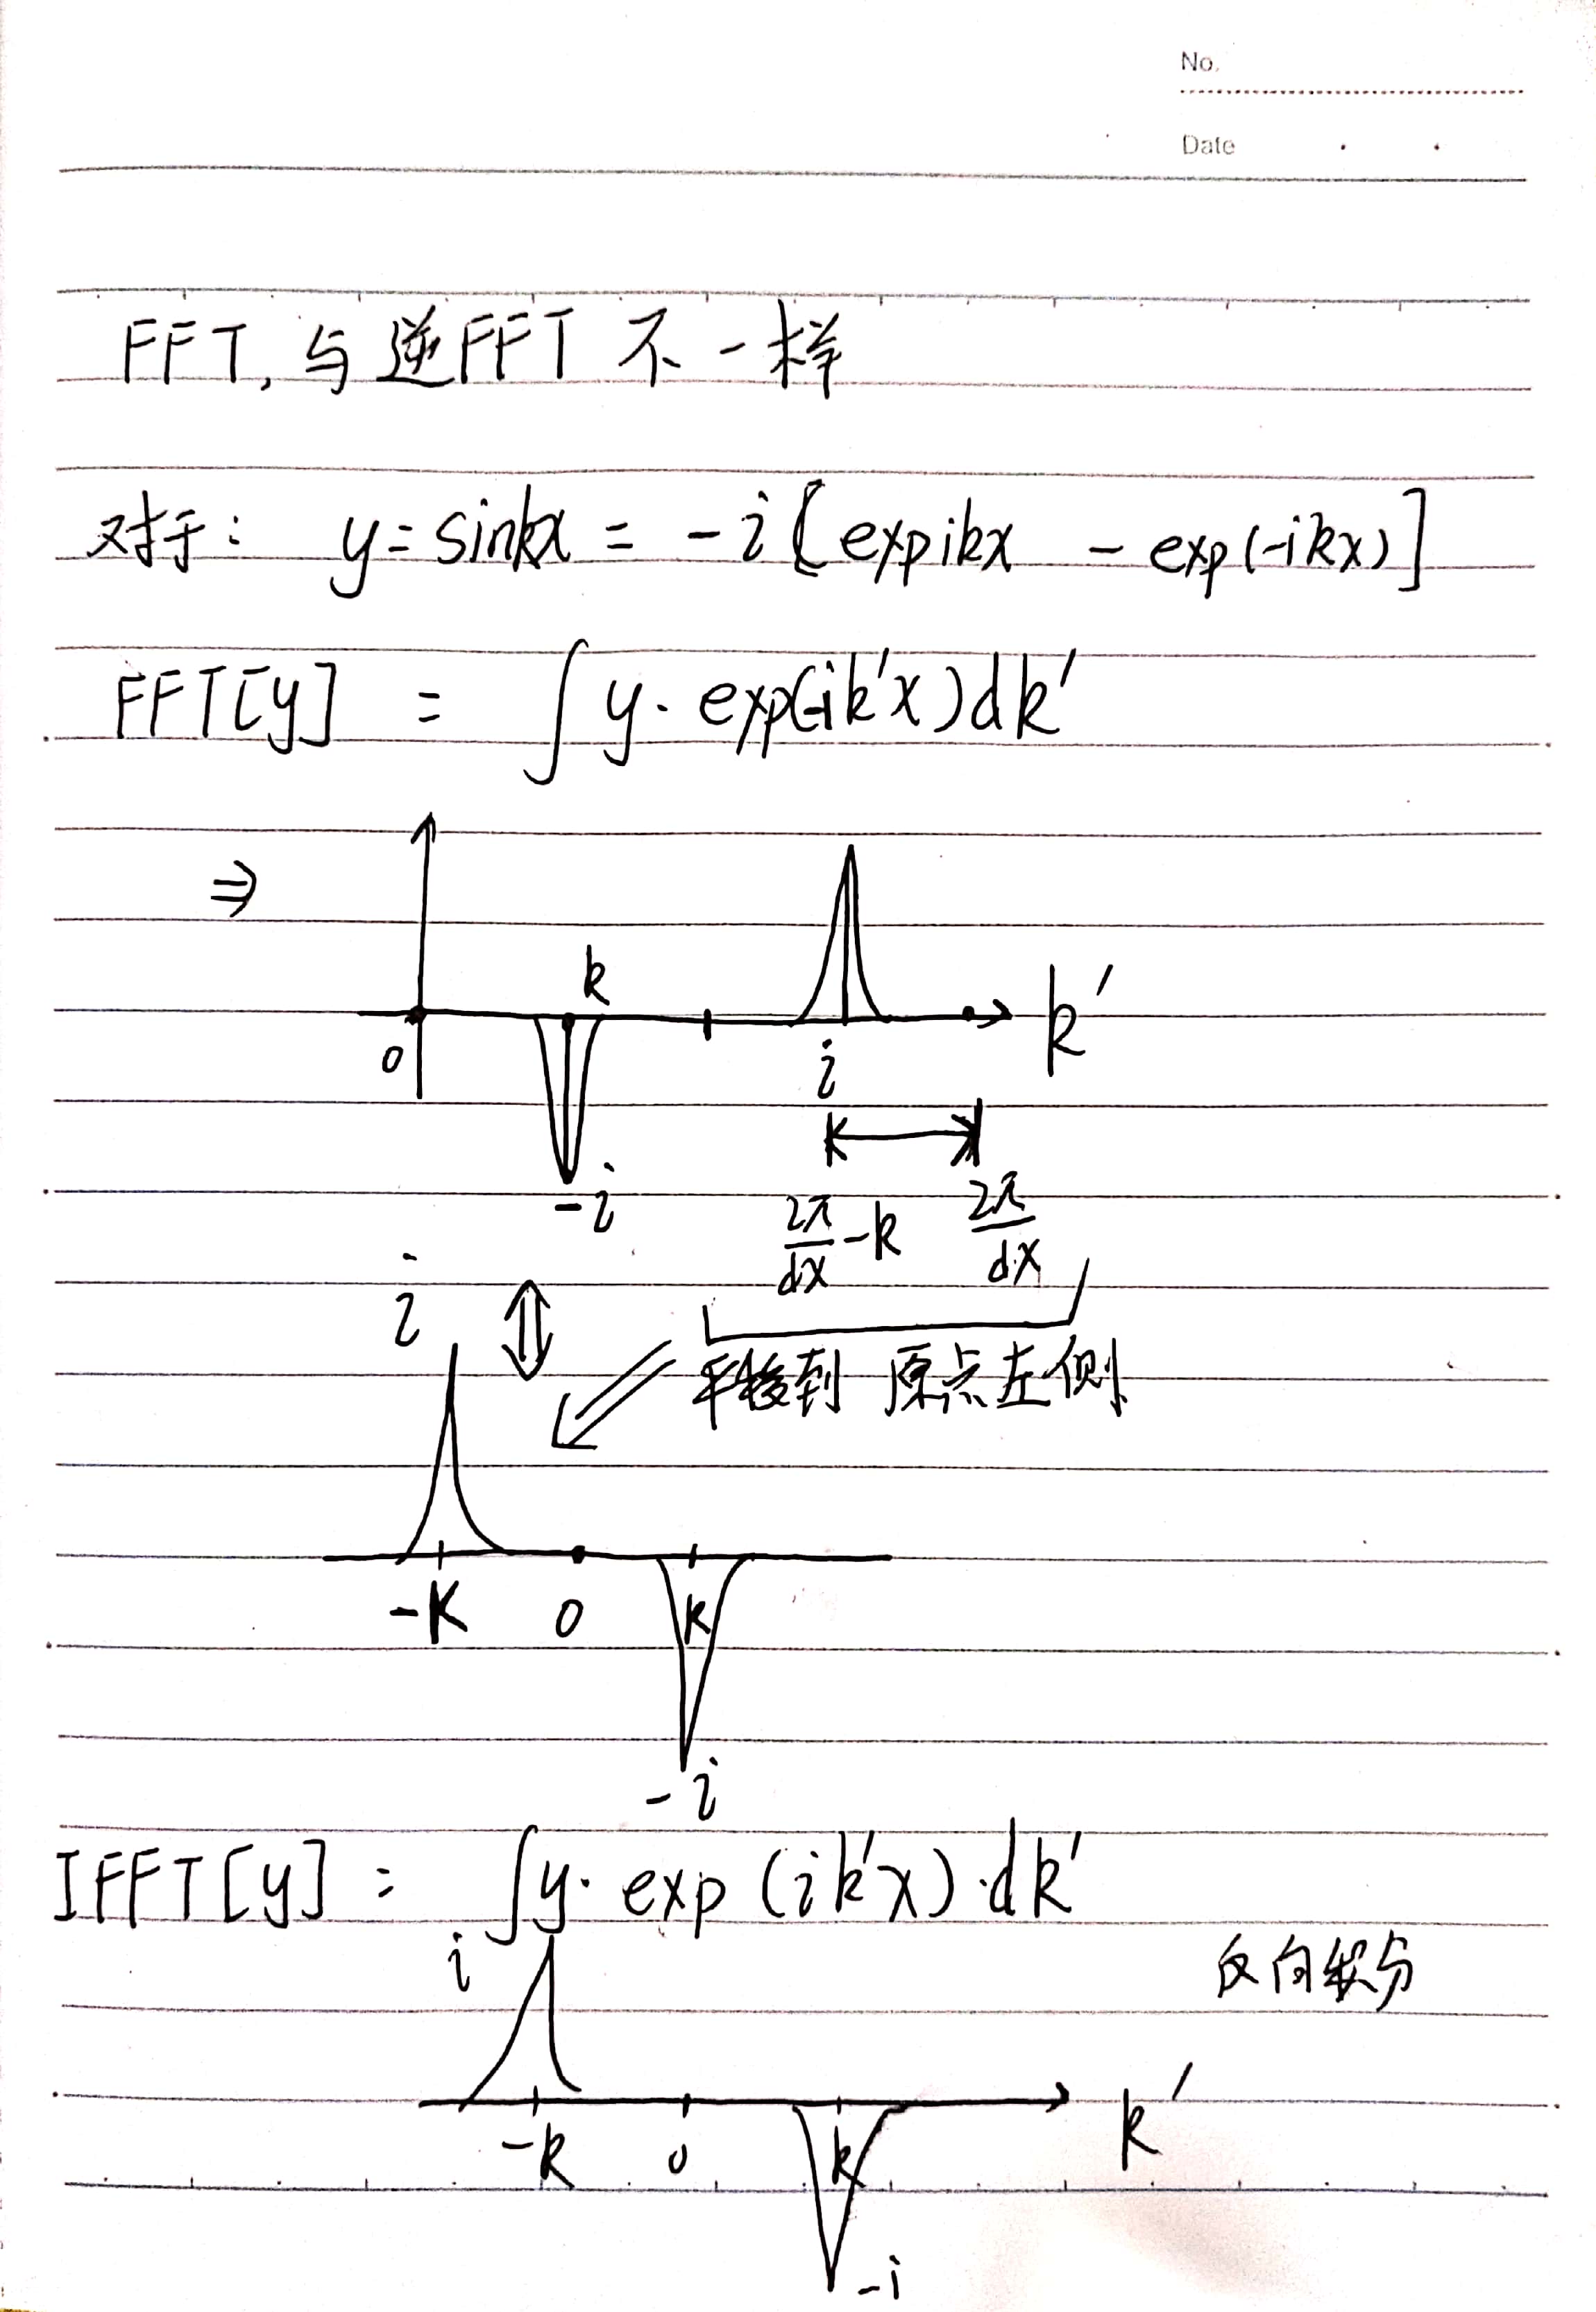 No.
Date
FFT, 与逆FFT 不一样
对于: y = sinkx = -i [expikx - exp(-ikx)]
FFT[y] = ∫ y · exp(-ik'x) dk'
⇒
k
0 k'
i
-i
2π/dx - k 2π/dx
i ⇕
平移到 原点左侧
-k 0 k
-i
IFFT[y] = ∫ y · exp (ik'x) · dk'
i 反向积分
-k 0 k k'
-i